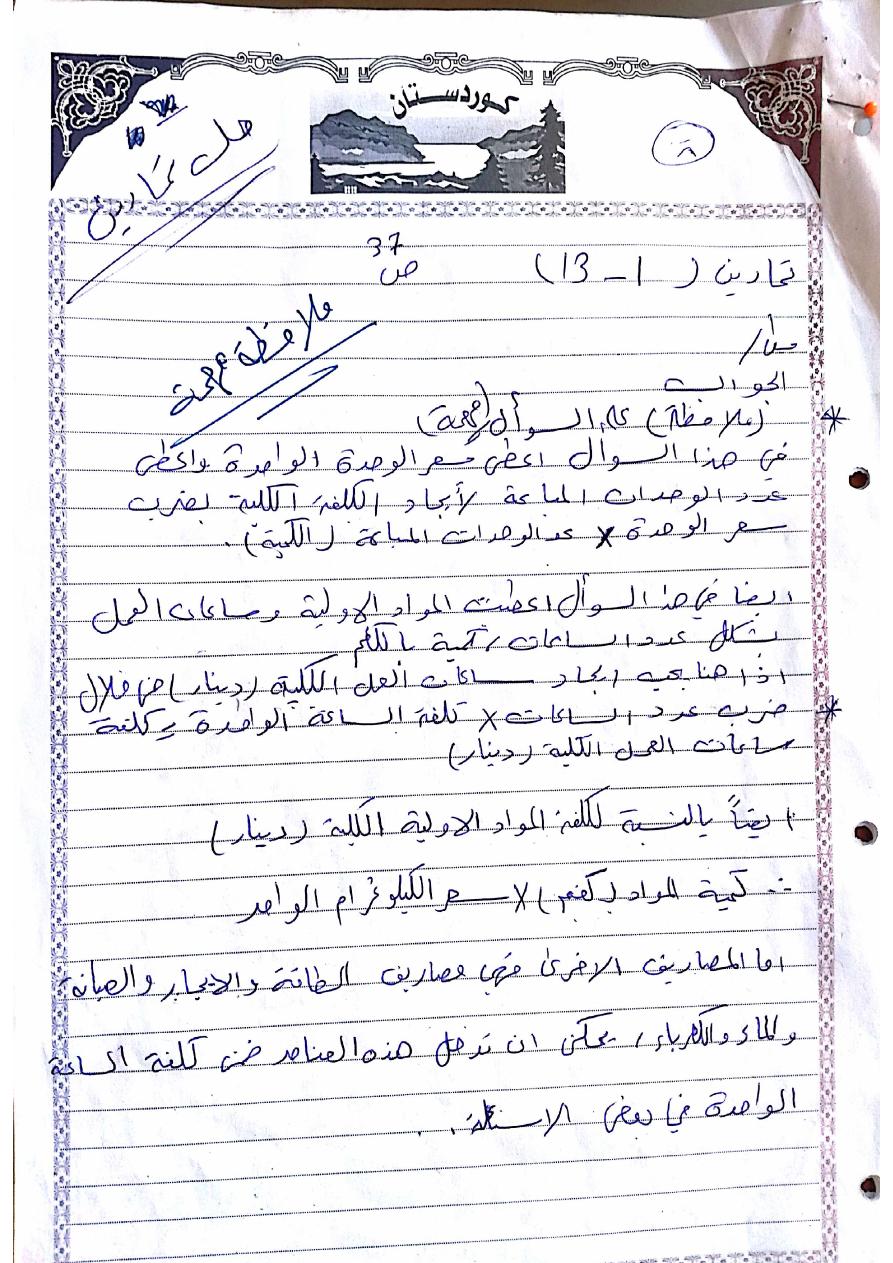 كوردستان
حل تمارين
٨
تمارين ( 1 - 13 ) ص 37
س1/
ملاحظة مهمة
الجواب
* (ملاحظة) على السؤال (مهمة)
في هذا السوال اعطى سعر الوحدة الواحدة واعطى
عدد الوحدات المباعة لأيجاد الكلفة الكلية بضرب
سعر الوحدة × عدد الوحدات المباعة (الكمية).
ايضا في هذا السوأل اعطيت المواد الاولية وساعات العمل
بشكل عدد الساعات / كمية بالكغم
اذا هنا يجب ايجاد ساعات العمل الكلية (دينار) من خلال
* ضرب عدد الساعات × تلفة الساعة الواحدة = كلفة
ساعات العمل الكلية (دينار)
ايضاً بالنسبة لكلفة المواد الاولية الكلية (دينار)
∴ كمية المواد (كغم) × سعر الكيلوغرام الواحد
اما المصاريف الاخرى فهي مصاريف الطاقة والايجار والصيانة
والماء والكهرباء، يمكن ان تدخل هذه العناصر ضمن كلفة الساعة
الواحدة في بعض الاسئلة . .